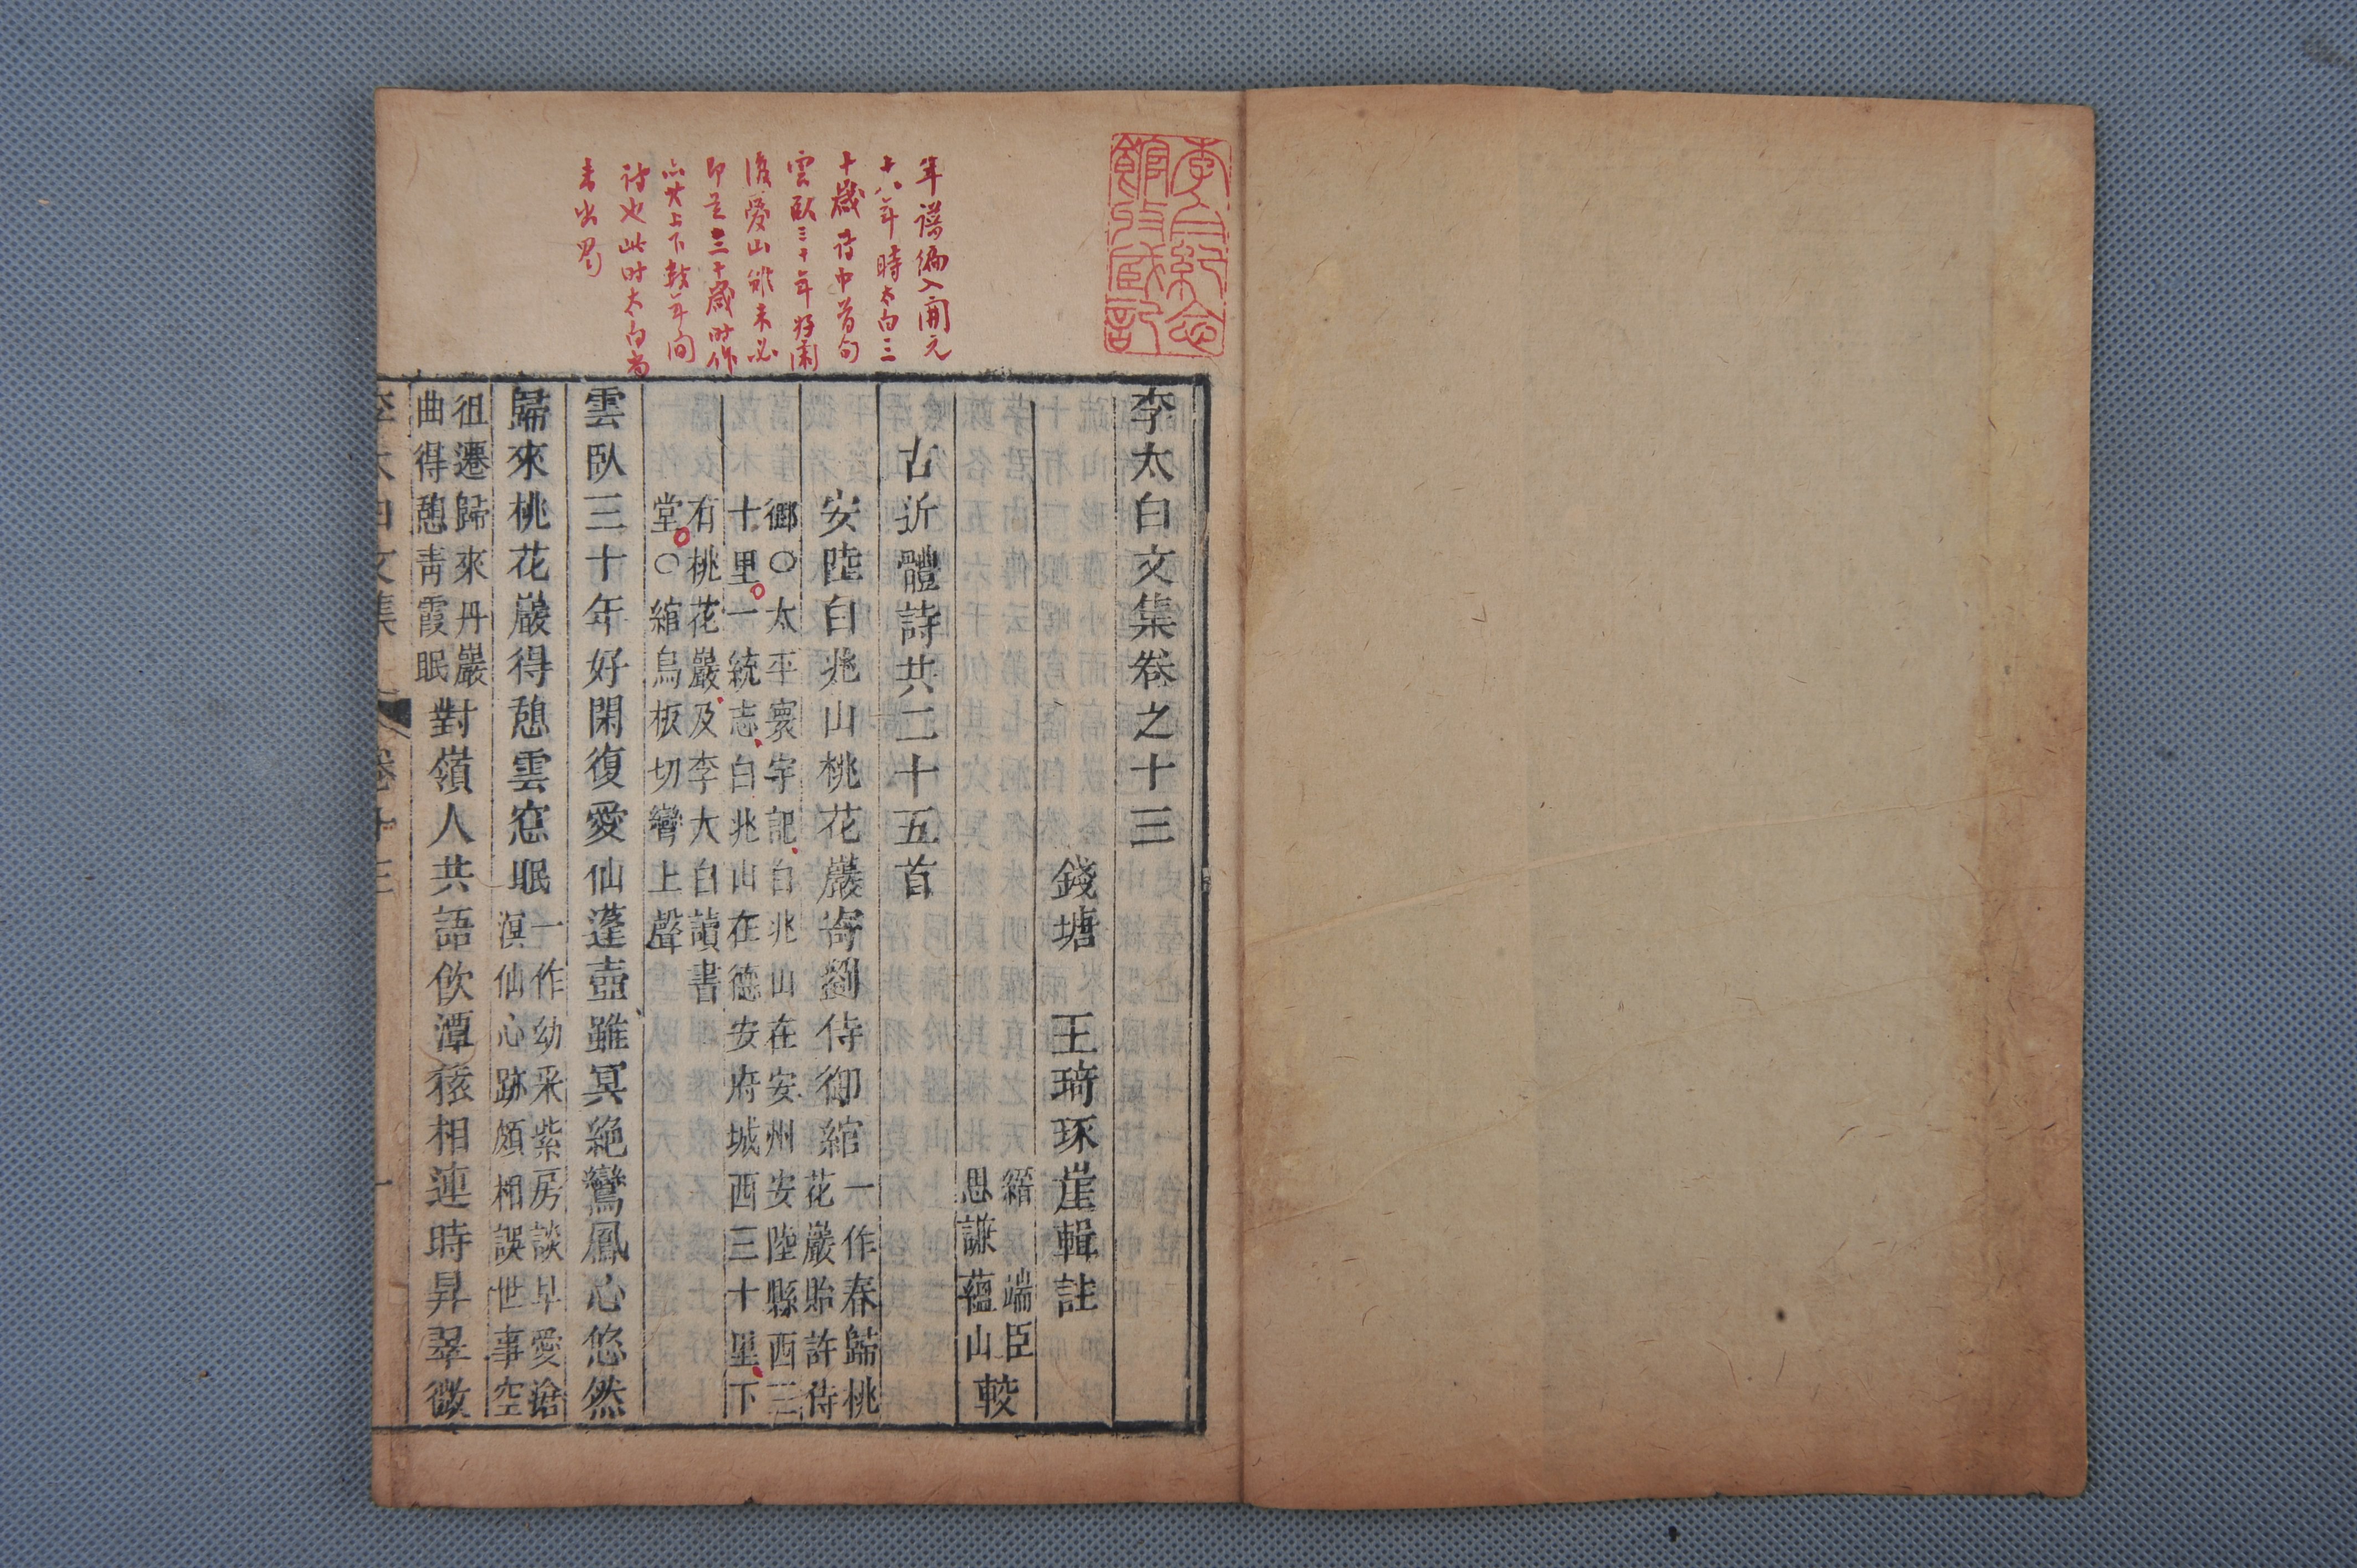 李白紀念
館收藏記
年譜編入開元
十八年時太白三
十歲詩中首句
雲臥三十年好閑
復愛山然未必
即是三十歲时作
上下數年间
詩也此时太白尚
未出蜀
李太白文集卷之十三
錢塘 王琦琢崖輯註
縉 端臣
思謙蘊山 較
古近體詩共二十五首
安陸白兆山桃花巖寄劉侍御綰 一作春歸桃
花巖貽許侍
御○太平寰宇記白兆山在安州安陸縣西三
十里一統志白兆山在德安府城西三十里下
有桃花巖及李太白讀書
堂○綰烏板切彎上聲
雲臥三十年好閑復愛仙蓬壺雖冥絶鸞鳳心悠然
歸來桃花巖得憩雲窓眠 一作幼采紫房談早愛滄
溟仙心跡頗相誤世事空
徂遷歸來丹巖
曲得憩靑霞眠
對嶺人共語飲潭猿相連時昇翠微
李太白文集 卷十三 一